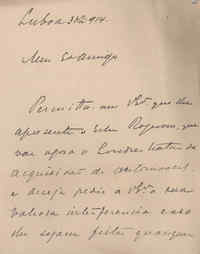 Lisboa
Meu Exº Amigo
Permitta-me V. Exª que lhe
apresente o Snr. Roquem, que
vae agora a Londres tratar da
acquisição de automoveis,
e deseja pedir a V. Exª a sua
valiosa interferencia caso
lhe sejam feitas quaesquer